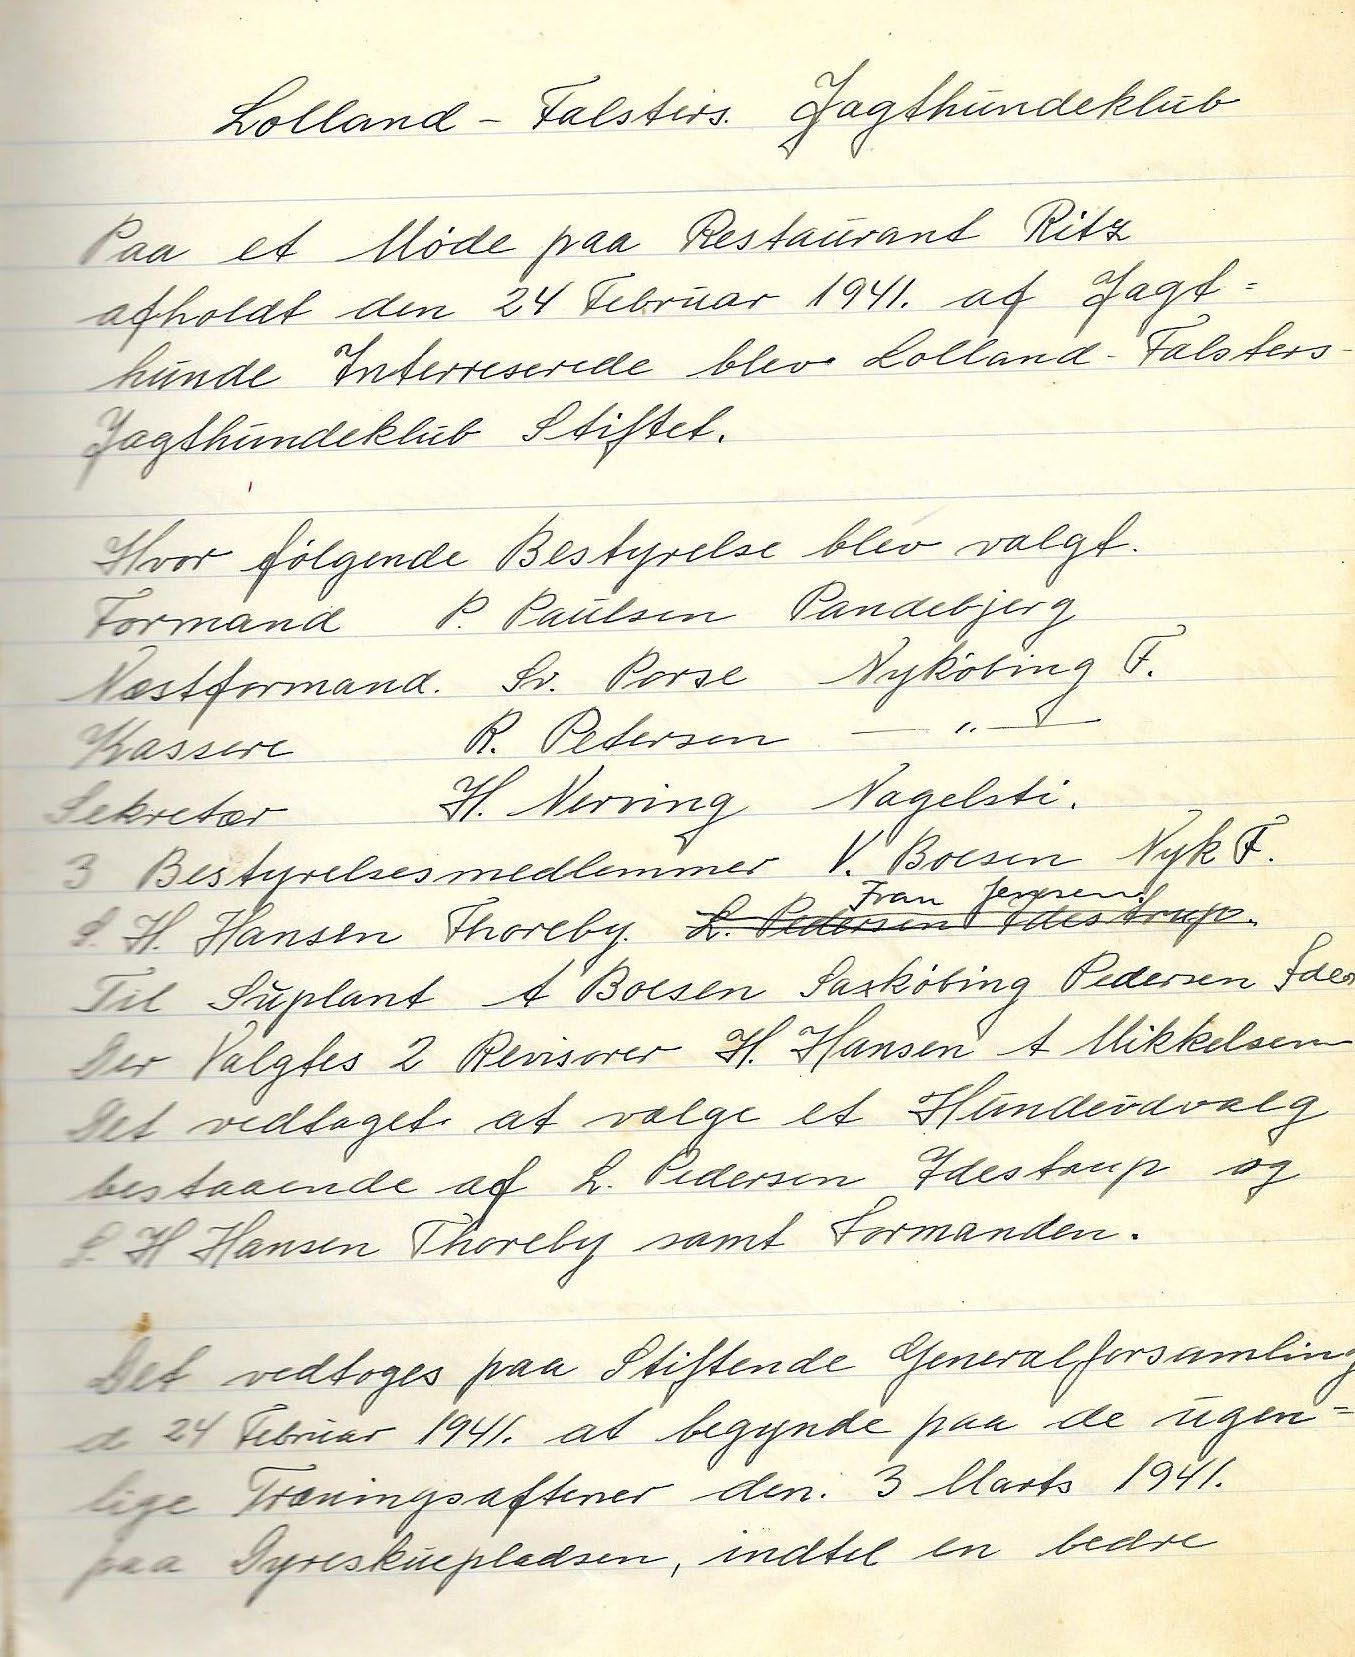 Lolland - Falsters. Jagthundeklub
Paa et Møde paa Restaurant Ritz
afholdt den 24 Februar 1941. af Jagt=
hunde Interreserede blev Lolland - Falsters-
Jagthundeklub Stiftet.
Hvor følgende Bestyrelse blev valgt.
Formand P. Paulsen Pandebjerg
Næstformand. Sv. Porse Nykøbing F.
Kassere R. Petersen — " —
Sekretær H. Nerving Nagelsti.
3 Bestyrelsesmedlemmer V. Boesen Nyk F.
Frau Jenssen
S. H. Hansen Thoreby. L. Pedersen Idestrup.
Til Suplant A Boesen Saxkøbing Pedersen Ides
Der Valgtes 2 Revisorer H. Hansen A Mikkelsen
Det vedtaget. at vælge et Hundeudvalg
bestaaende af L. Pedersen Idestrup og
S. H Hansen Thoreby samt Formanden.
Det vedtoges paa Stiftende Generalforsamling
d 24 Februar 1941. at begynde paa de ugen=
lige Træningsaftener den. 3 Marts 1941.
paa Dyreskuepladsen, indtil en bedre